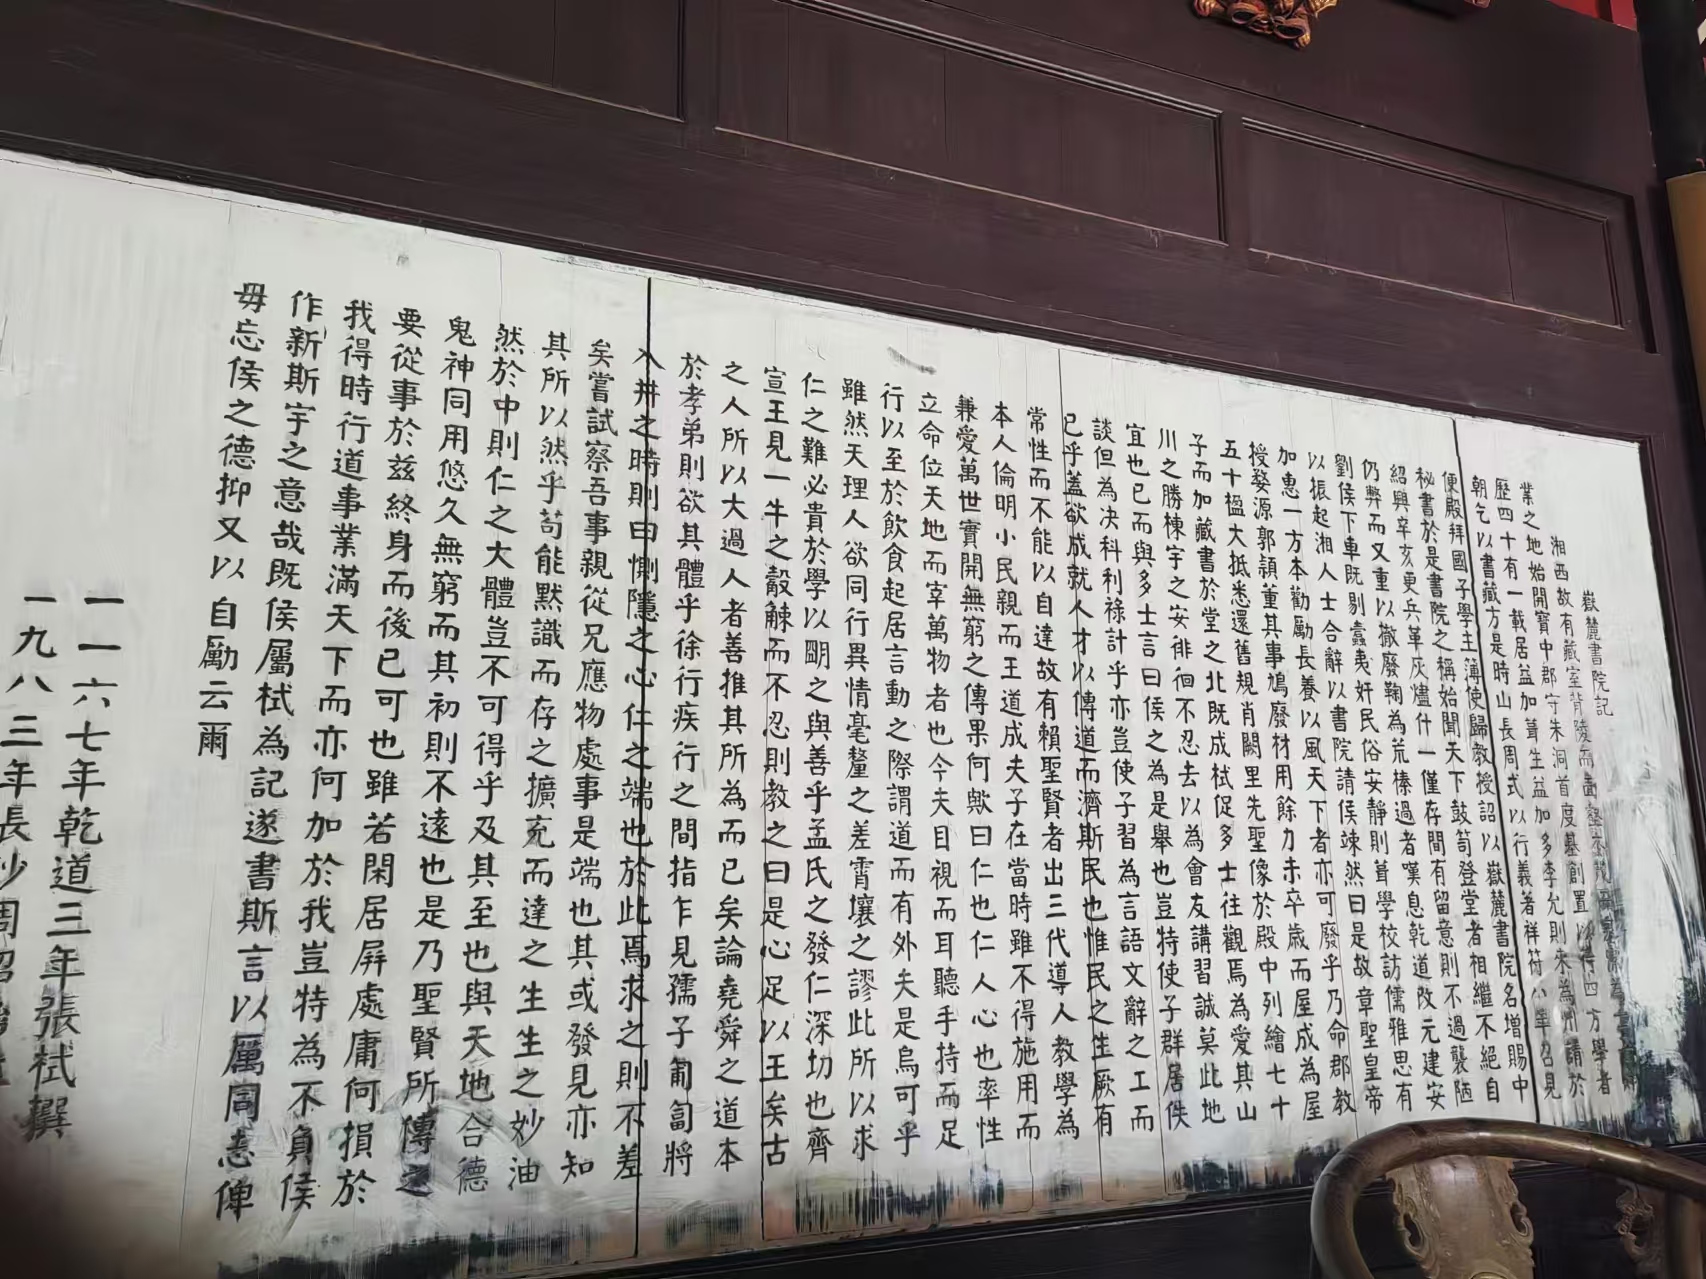 嶽麓書院記
湘西故有藏室背陵而
業之地始開寶中郡守朱洞首度基創置以待四方學者
歷四十有一載居益加葺生益加多李允則來為州請於
朝乞以書藏方是時山長周式以行義者祥符八年召見
便殿拜國子學主薄使歸教授詔以嶽麓書院名增賜中
秘書於是書院之稱始聞天下鼓笥登堂者相繼不絕自
紹興辛亥更兵革灰燼什一僅存間有留意則不過襲陋
仍弊而又重以撤廢鞠為荒榛過者嘆息乾道改元建安
劉侯下車既剔蠹夷奸民俗安靜則葺學校訪儒雅思有
以振起湘人士合辭以書院請侯竦然曰是故章聖皇帝
加惠一方本勸勵長養以風天下者亦可廢乎乃命郡教
授婺源郭顈董其事鳩廢材用餘力未卒歲而屋成為屋
五十楹大抵悉還舊規肖闕里先聖像於殿中列繪七十
子而加藏書於堂之北既成栻促多士往觀焉為愛其山
川之勝棟宇之安徘徊不忍去以為會友講習誠莫此地
宜也已而與多士言曰侯之為是舉也豈特使子群居佚
談但為決科利祿計乎亦豈使子習為言語文辭之工而
已乎蓋欲成就人才以傳道而濟斯民也惟民之生厥有
常性而不能以自達故有賴聖賢者出三代導人教學為
本人倫明小民親而王道成夫子在當時雖不得施用而
兼愛萬世實開無窮之傳果何歟曰仁也仁人心也率性
立命位天地而宰萬物者也今夫目視而耳聽手持而足
行以至於飲食起居言動之際謂道而有外夫是烏可乎
雖然天理人欲同行異情毫釐之差霄壤之謬此所以求
仁之難必貴於學以明之與善乎孟氏之發仁深切也齊
宣王見一牛之觳觫而不忍則教之曰是心足以王矣古
之人所以大過人者善推其所為而已矣論堯舜之道本
於孝弟則欲其體乎徐行疾行之間指乍見孺子匍匐將
入井之時則曰惻隱之心仁之端也於此焉求之則不差
矣嘗試察吾事親從兄應物處事是端也其或發見亦知
其所以然乎苟能默識而存之擴充而達之生生之妙油
然於中則仁之大體豈不可得乎及其至也與天地合德
鬼神同用悠久無窮而其初則不遠也是乃聖賢所傳之
要從事於茲終身而後已可也雖若閑居屏處庸何損於
我得時行道事業滿天下而亦何加於我豈特為不負侯
作新斯宇之意哉既侯屬栻為記遂書斯言以厲同志俾
毋忘侯之德抑又以自勵云爾
一一六七年乾道三年張栻撰
一九八三年長沙周昭怡